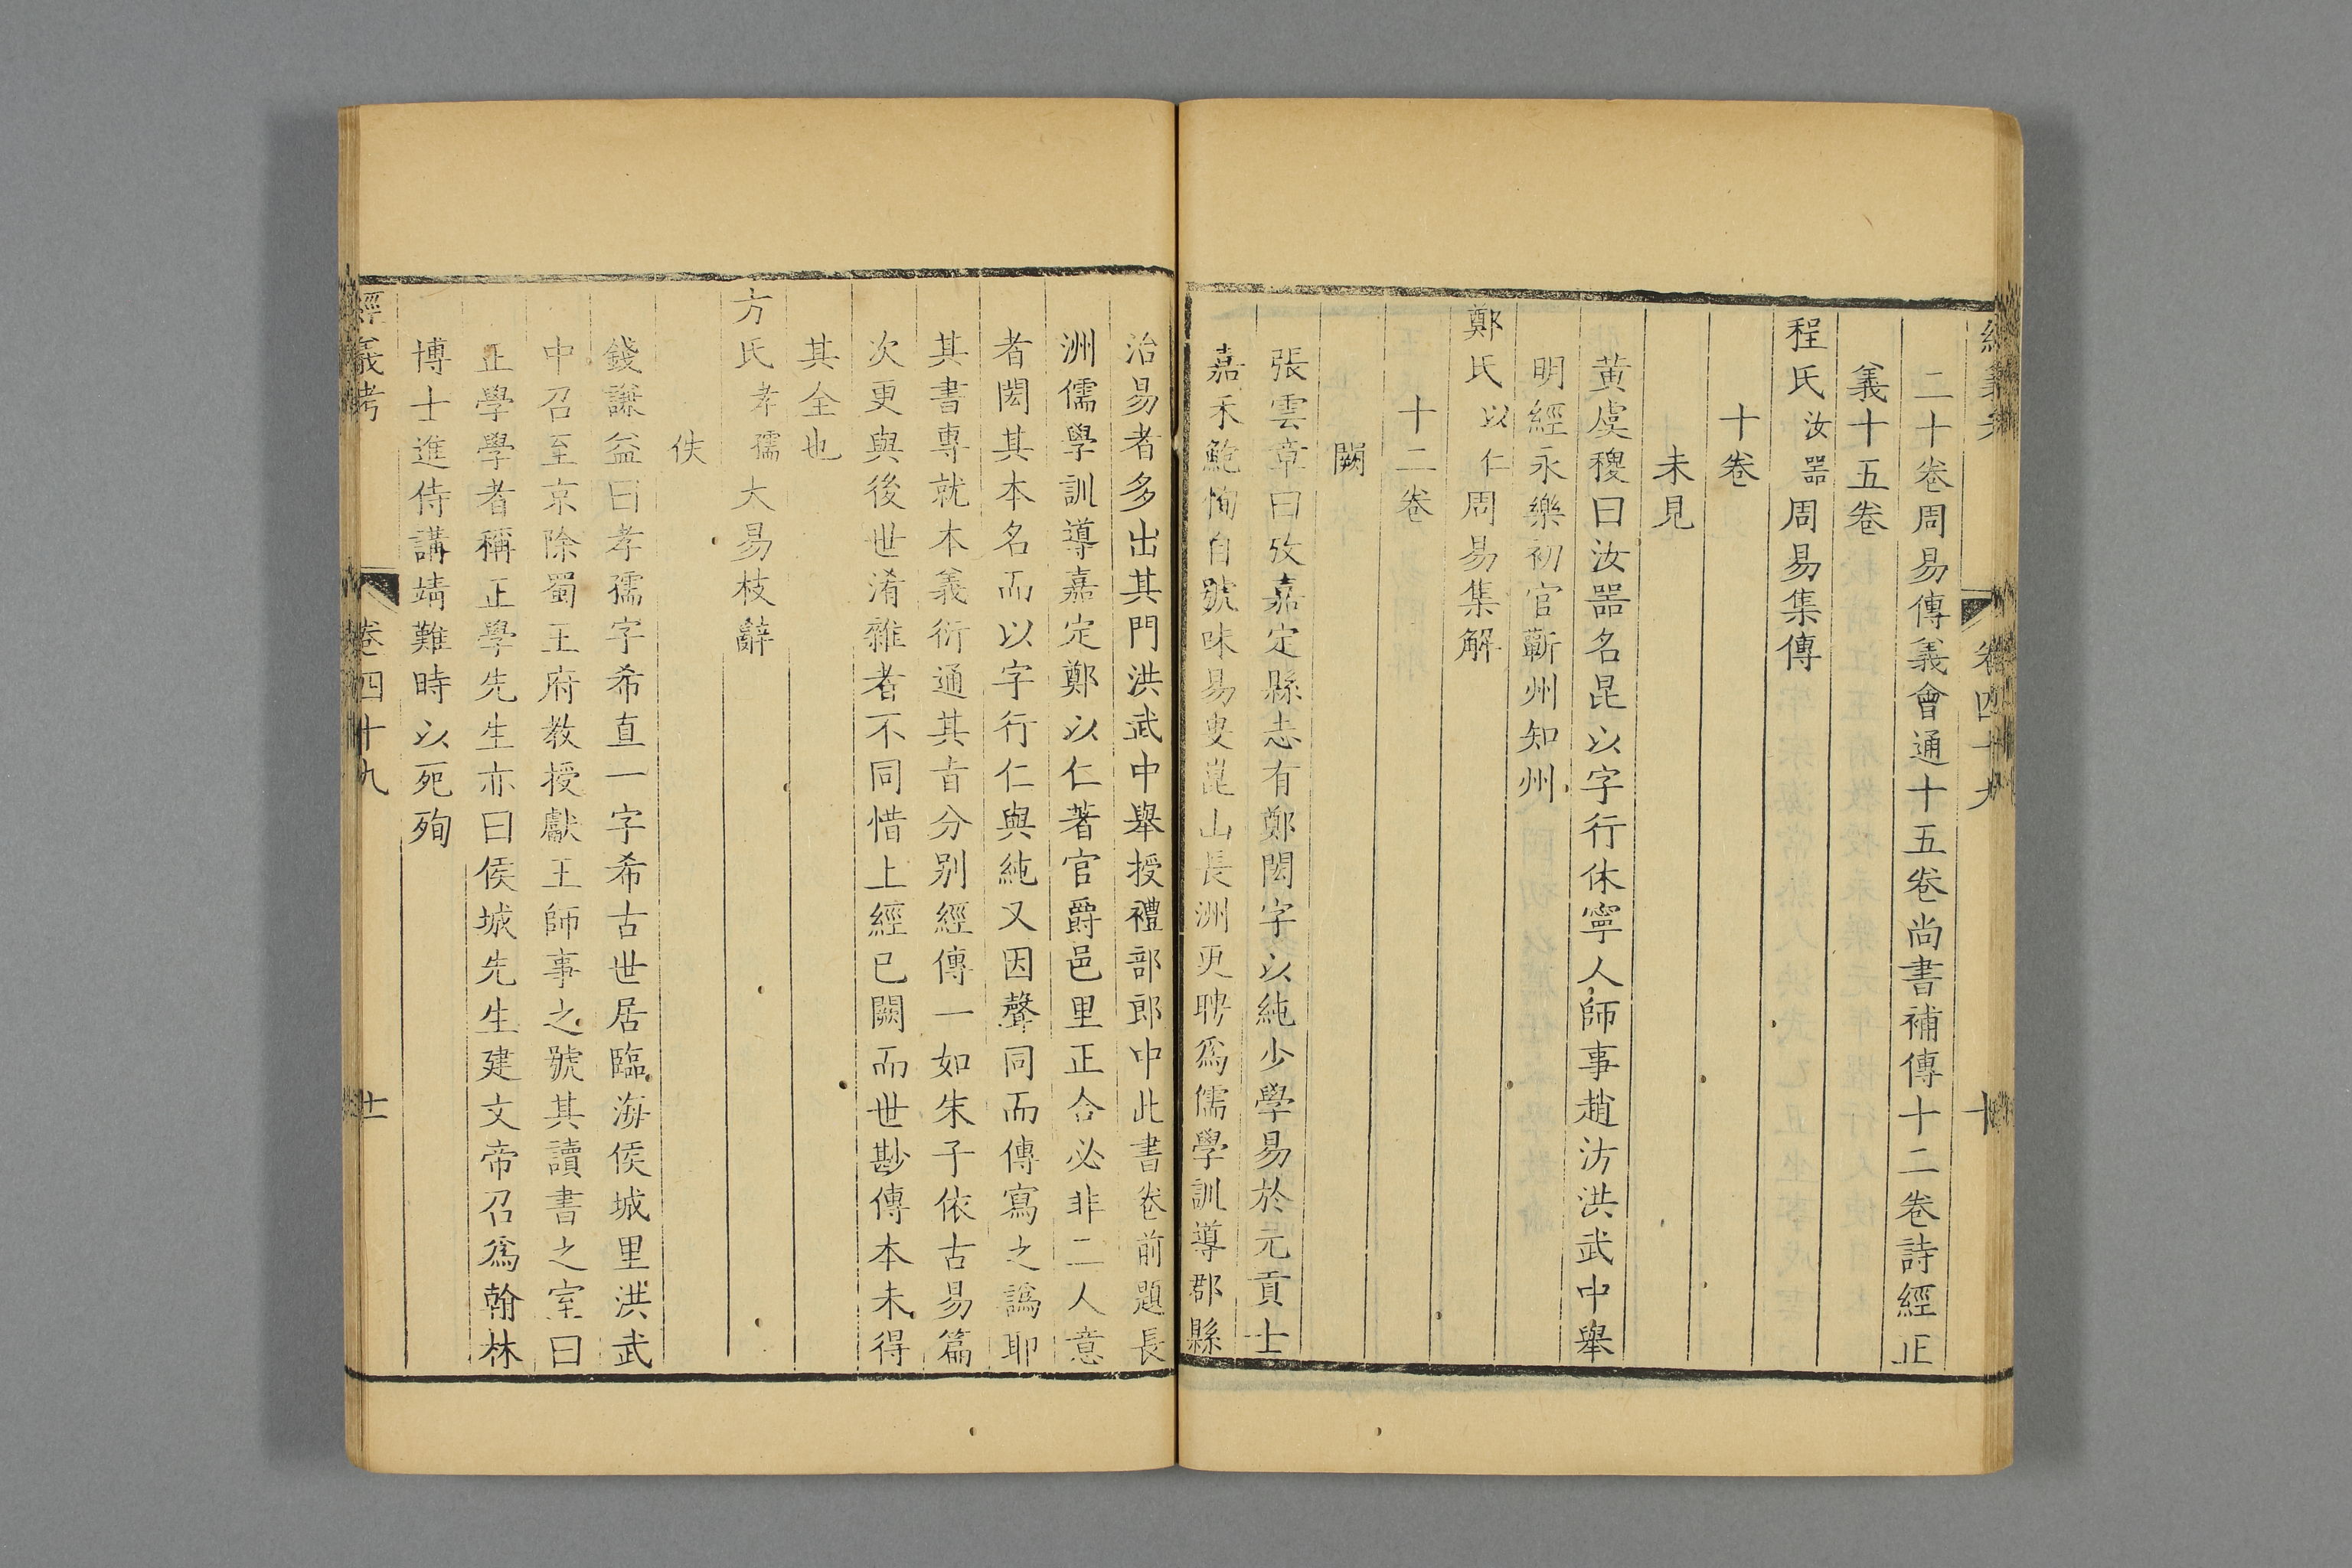 經義考 卷四十九 十
二十卷周易傳義會通十五卷尚書補傳十二卷詩經正
義十五卷
程氏汝器周易集傳
十卷
未見
黃虞稷曰汝器名昆以字行休寧人師事趙汸洪武中舉
明經永樂初官蘄州知州
鄭氏以仁周易集解
十二卷
闕
張雲章曰攷嘉定縣志有鄭閎字以純少學易於元貢士
嘉禾鮑恂自號味易叟崑山長洲更聘爲儒學訓導郡縣
治易者多出其門洪武中舉授禮部郎中此書卷前題長
洲儒學訓導嘉定鄭以仁著官爵邑里正合必非二人意
者閎其本名而以字行仁與純又因聲同而傳寫之譌耶
其書專就本義衍通其旨分别經傳一如朱子依古易篇
次更與後世淆雜者不同惜上經已闕而世尠傳本未得
其全也
方氏孝孺大易枝辭
佚
錢謙益曰孝孺字希直一字希古世居臨海侯城里洪武
中召至京除蜀王府教授獻王師事之號其讀書之室曰
正學學者稱正學先生亦曰侯城先生建文帝召爲翰林
博士進侍講靖難時以死殉
經義考 卷四十九 十一